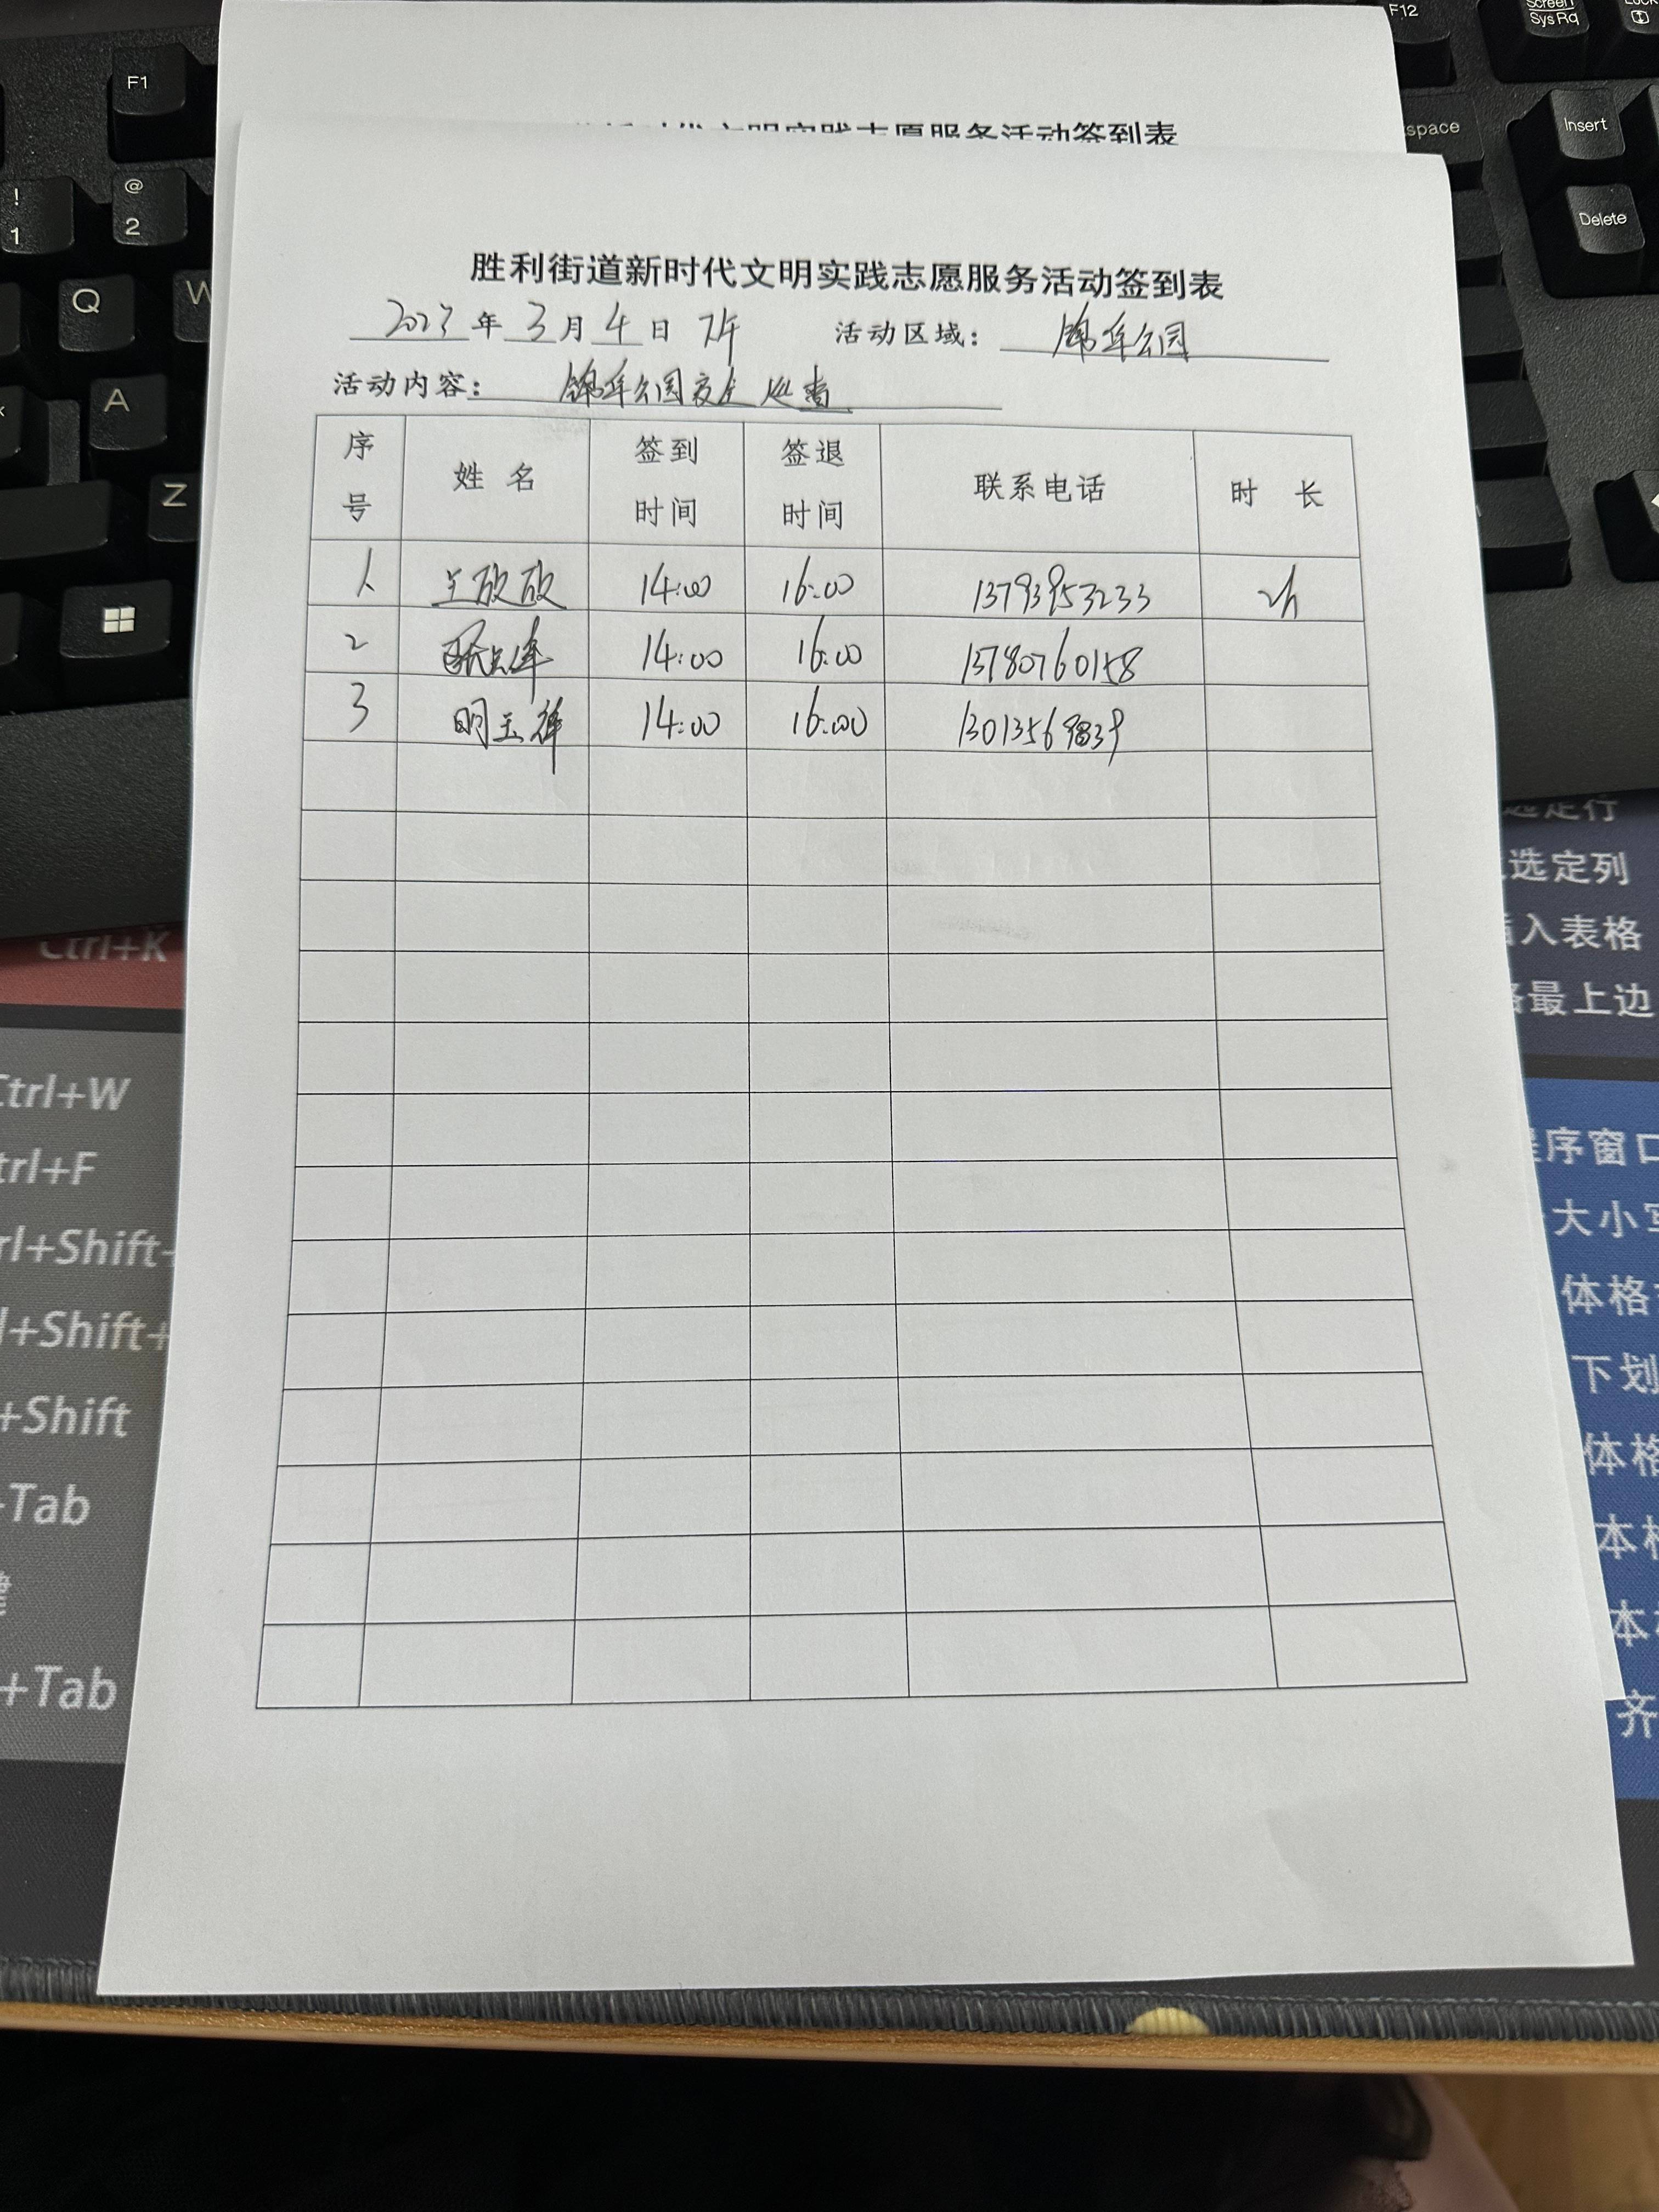 F1
F12
Screen
Sys Rq
Insert
Delete
space
!
1
@
2
Q
W
A
Z
文明实践志愿服务活动签到表
胜利街道新时代文明实践志愿服务活动签到表
2023年3月4日 下午 活动区域: 锦华公园
活动内容: 锦华公园安全巡查
序号 姓名 签到时间 签退时间 联系电话 时长
1 王欣欣 14:00 16:00 13793953233 2h
2 14:00 16:00 13780760158
3 明玉祥 14:00 16:00 13013569839
选定行
选定列
插入表格
格最上边
Ctrl+K
Ctrl+W
Ctrl+F
Ctrl+Shift+
+Shift+
+Shift
+Tab
+Tab
程序窗口
大小写
体格
下划
体格
本
本
齐